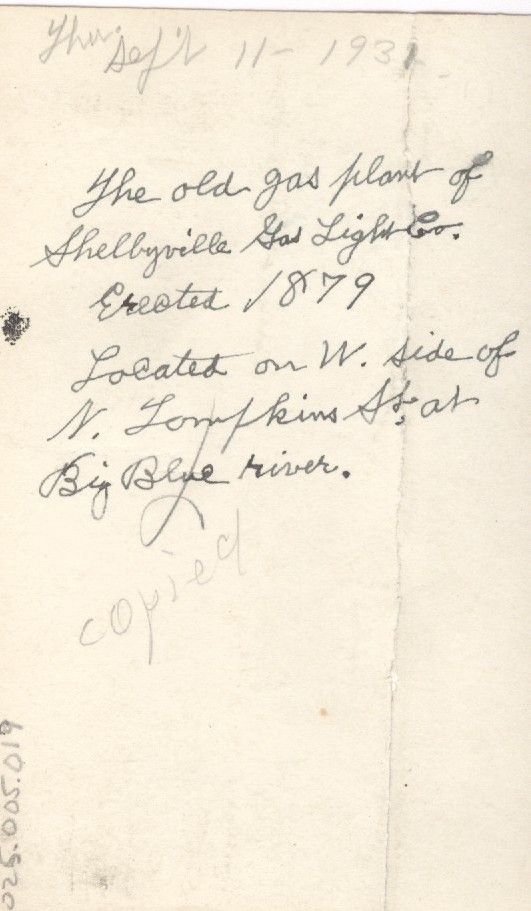 Thur.
Sep't 11 - 193
The old gas plant of
Shelbyville Gas Light Co.
Erected 1879
Located on W. side of
N. Tompkins St. at
Big Blue river.
copied
025.005.019